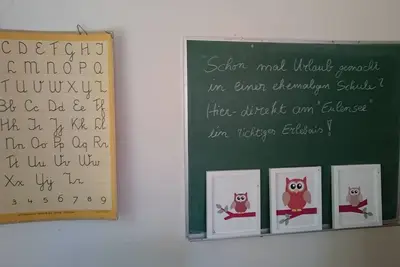 C D E F G H J
L M N O P Q
T U V W X Y Z
Bb Cc Dd Ee Ff
Hh Ii Jj Kk Ll
Nn Oo Pp Qq Rr
Tt Uu Vv Ww
Xx Yy Zz
3 4 5 6 7 8 9
Schon mal Urlaub gemacht
in einer ehemaligen Schule?
Hier direkt am "Eulensee"
ein richtiges Erlebnis!